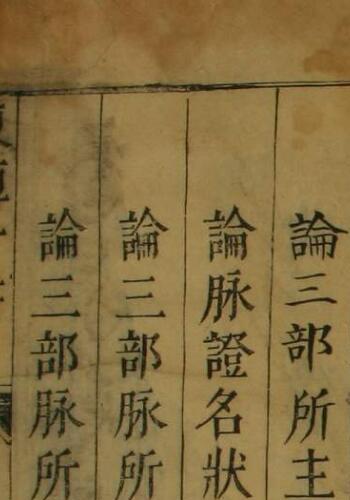 論三部所主
論脉證名狀
論三部脉所
論三部脉所